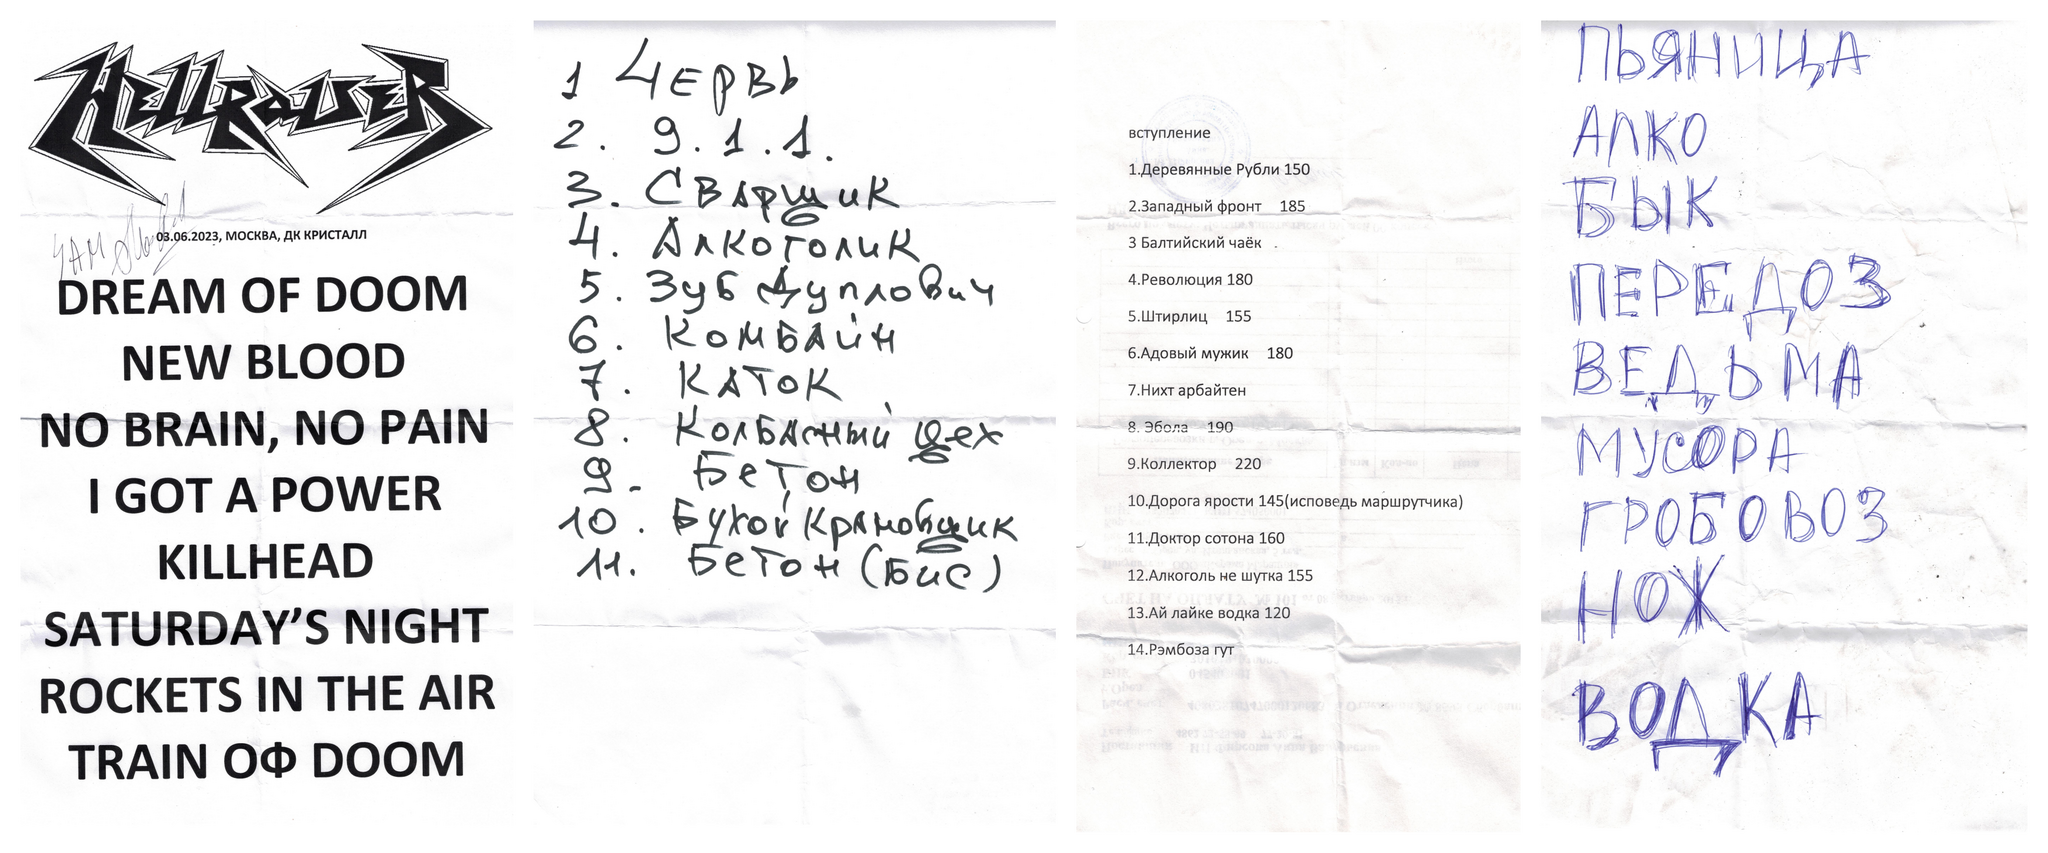 HELLRAISER
03.06.2023, МОСКВА, ДК КРИСТАЛЛ
DREAM OF DOOM
NEW BLOOD
NO BRAIN, NO PAIN
I GOT A POWER
KILLHEAD
SATURDAY'S NIGHT
ROCKETS IN THE AIR
TRAIN OФ DOOM
1 ЧЕРВЬ
2. 9.1.1.
3. СВАРЩИК
4. Алкоголик
5. Зуб Дуплович
6. Комбайн
7. Каток
8. Колбасный цех
9. Бетон
10. Бухой Крановщик
11. Бетон (Бис)
вступление
1.Деревянные Рубли 150
2.Западный фронт 185
3 Балтийский чаёк .
4.Революция 180
5.Штирлиц 155
6.Адовый мужик 180
7.Нихт арбайтен
8. Эбола 190
9.Коллектор 220
10.Дорога ярости 145(исповедь маршрутчика)
11.Доктор сотона 160
12.Алкоголь не шутка 155
13.Ай лайке водка 120
14.Рэмбоза гут
ПЬЯНИЦА
АЛКО
БЫК
ПЕРЕДОЗ
ВЕДЬМА
МУСОРА
ГРОБОВОЗ
НОЖ
ВОДКА